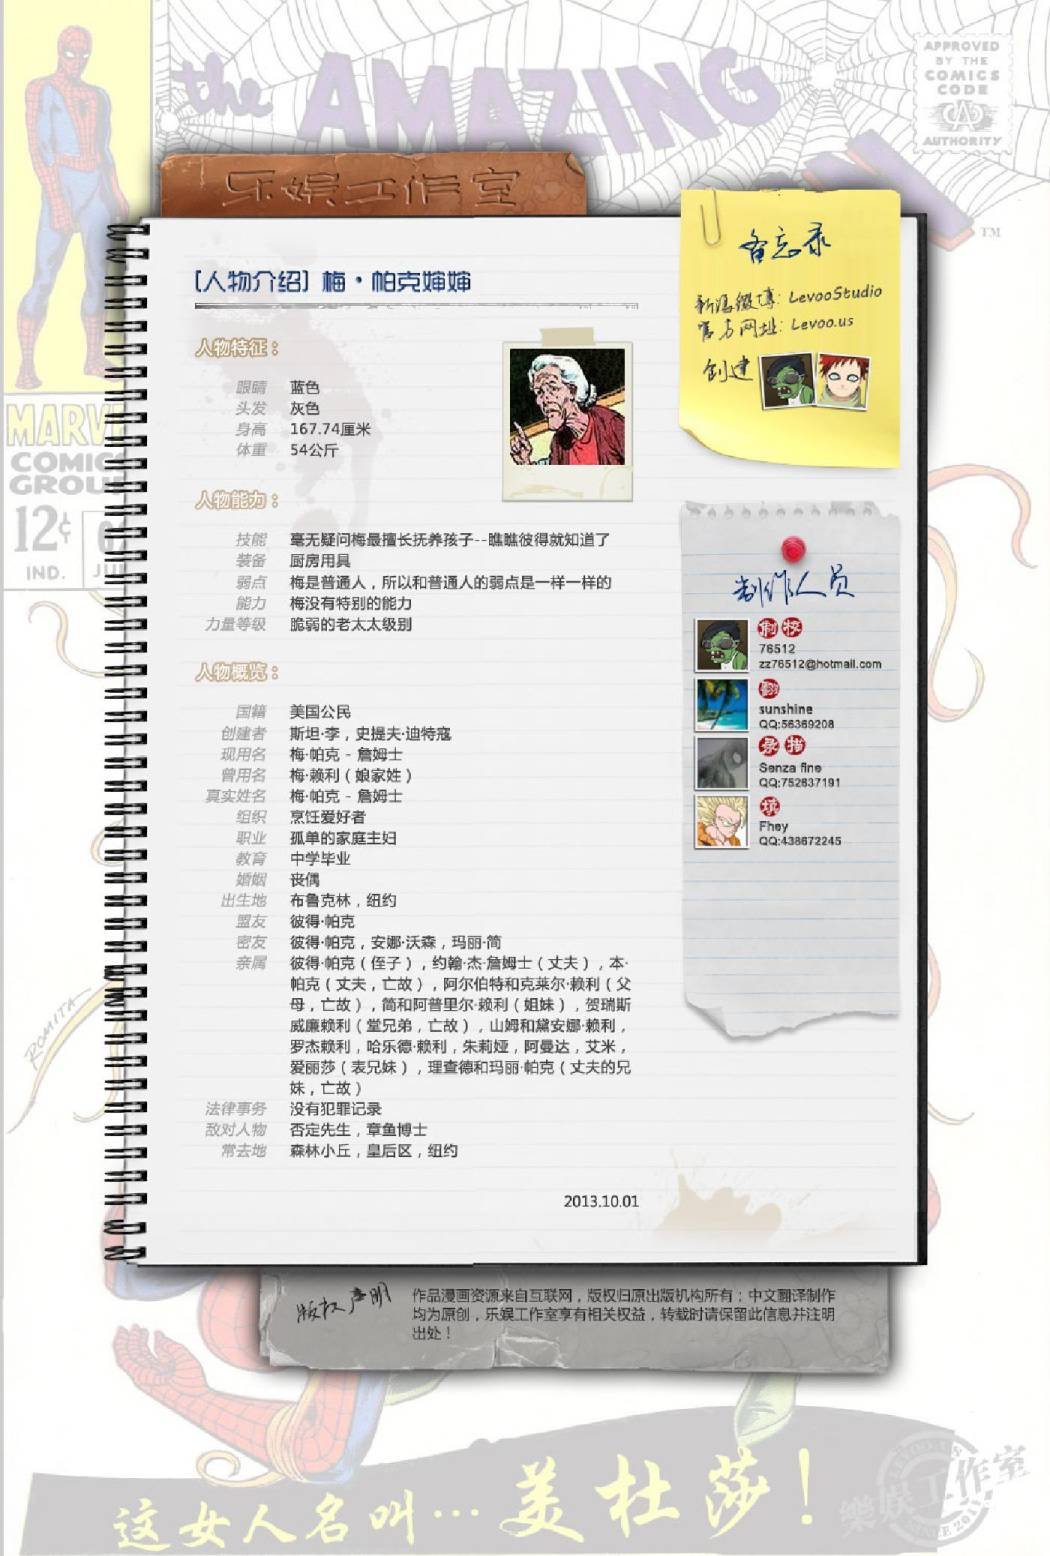 the AMAZING
APPROVED
BY THE
COMICS
CODE
CA
AUTHORITY
TM
MARV
COMICS
GROU
12¢
IND.
JU
乐娱工作室
[人物介绍] 梅·帕克婶婶
人物特征：
眼睛 蓝色
头发 灰色
身高 167.74厘米
体重 54公斤
人物能力：
技能 毫无疑问梅最擅长抚养孩子--瞧瞧彼得就知道了
装备 厨房用具
弱点 梅是普通人，所以和普通人的弱点是一样一样的
能力 梅没有特别的能力
力量等级 脆弱的老太太级别
人物概览：
国籍 美国公民
创建者 斯坦·李，史提夫·迪特寇
现用名 梅·帕克 - 詹姆士
曾用名 梅·赖利（娘家姓）
真实姓名 梅·帕克 - 詹姆士
组织 烹饪爱好者
职业 孤单的家庭主妇
教育 中学毕业
婚姻 丧偶
出生地 布鲁克林，纽约
盟友 彼得·帕克
密友 彼得·帕克，安娜·沃森，玛丽·简
亲属 彼得·帕克（侄子），约翰·杰·詹姆士（丈夫），本·
帕克（丈夫，亡故），阿尔伯特和克莱尔·赖利（父
母，亡故），简和阿普里尔·赖利（姐妹），贺瑞斯
威廉赖利（堂兄弟，亡故），山姆和黛安娜·赖利，
罗杰赖利，哈乐德·赖利，朱莉娅，阿曼达，艾米，
爱丽莎（表兄妹），理查德和玛丽·帕克（丈夫的兄
妹，亡故）
法律事务 没有犯罪记录
敌对人物 否定先生，章鱼博士
常去地 森林小丘，皇后区，纽约
2013.10.01
备忘录
新浪微博: LevooStudio
官方网址: Levoo.us
创建
制作人员
制 校
76512
zz76512@hotmail.com
翻
sunshine
QQ:56369208
录 描
Senza fine
QQ:752637191
填
Fhey
QQ:438672245
ROMITA
版权声明
作品漫画资源来自互联网，版权归原出版机构所有；中文翻译制作
均为原创，乐娱工作室享有相关权益，转载时请保留此信息并注明
出处！
这女人名叫…美杜莎！
樂娱工作室
SINCE 201